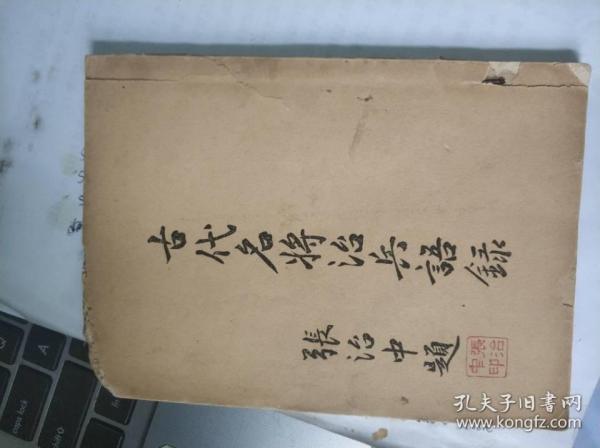 古代名將治兵語録
張治中題
張治中印
孔夫子旧书网
www.kongfz.com
caps lock